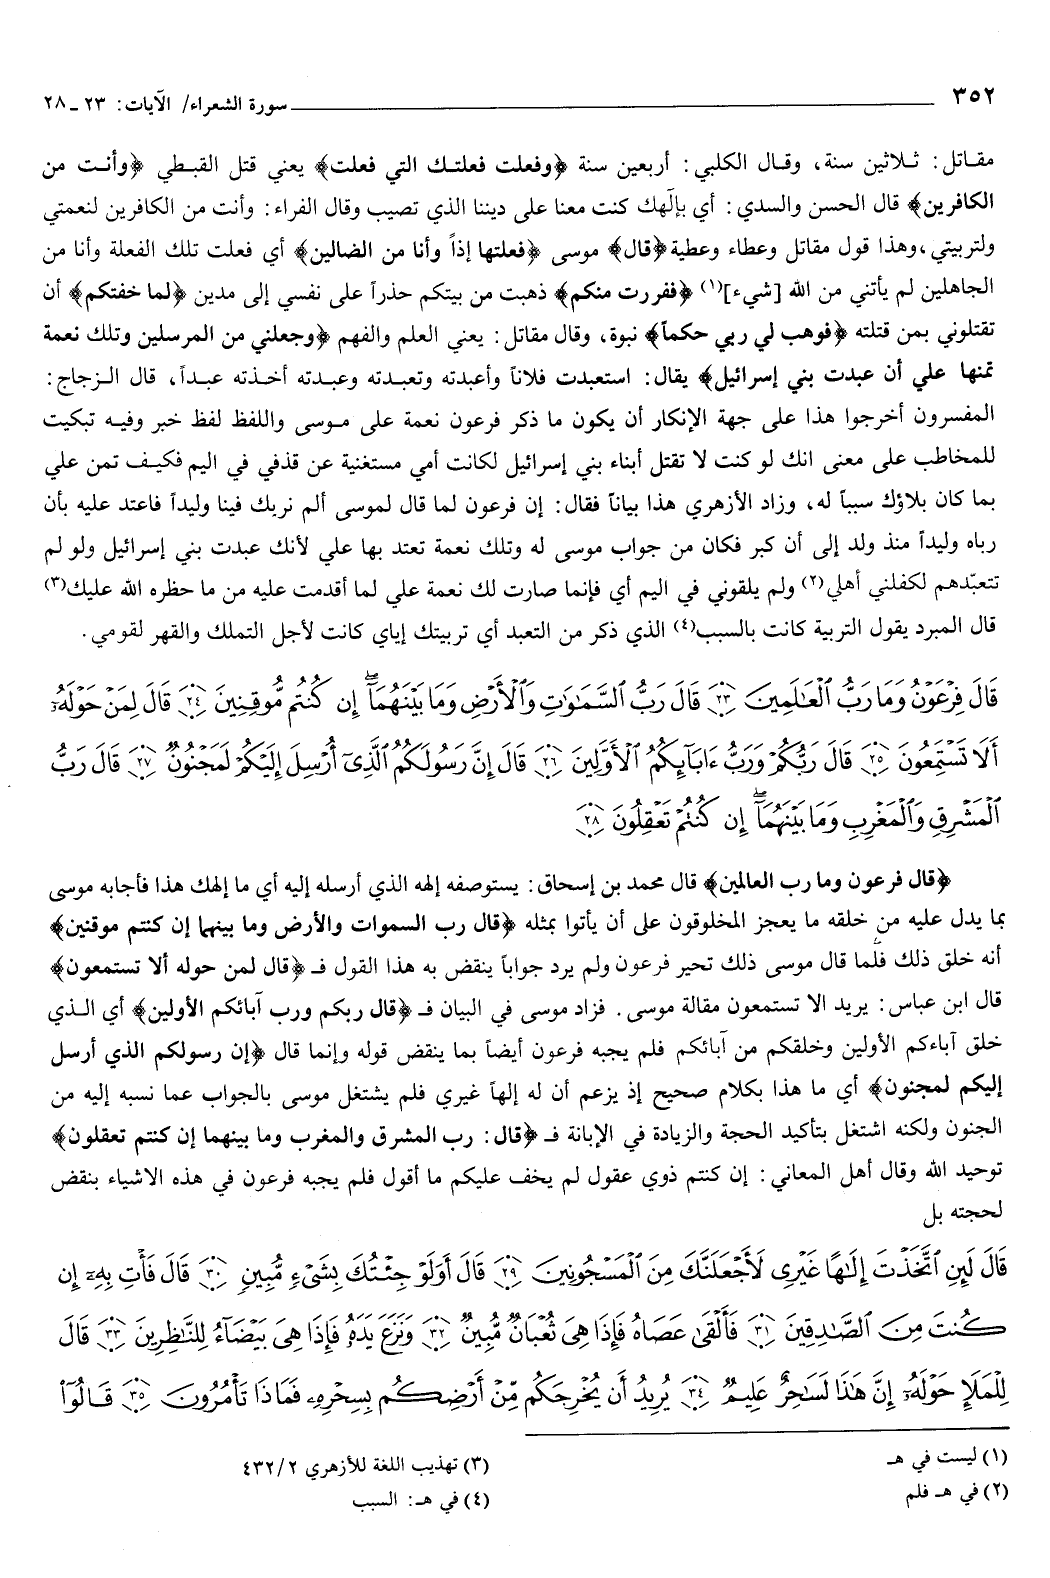 ٣٥٢ سورة الشعراء/ الآيات: ٢٣ ـ ٢٨
مقاتل: ثلاثين سنة، وقال الكلبي: أربعين سنة ﴿وفعلت فعلتك التي فعلت﴾ يعني قتل القبطي ﴿وأنت من
الكافرين﴾ قال الحسن والسدي: أي بإلهك كنت معنا على ديننا الذي تصيب وقال الفراء: وأنت من الكافرين لنعمتي
ولتربيتي، وهذا قول مقاتل وعطاء وعطية ﴿قال﴾ موسى ﴿فعلتها إذاً وأنا من الضالين﴾ أي فعلت تلك الفعلة وأنا من
الجاهلين لم يأتني من الله [شيء](١) ﴿ففررت منكم﴾ ذهبت من بيتكم حذراً على نفسي إلى مدين ﴿لما خفتكم﴾ أن
تقتلوني بمن قتلته ﴿فوهب لي ربي حكماً﴾ نبوة، وقال مقاتل: يعني العلم والفهم ﴿وجعلني من المرسلين وتلك نعمة
تمنها علي أن عبدت بني إسرائيل﴾ يقال: استعبدت فلاناً وأعبدته وتعبدته وعبدته أخذته عبداً، قال الزجاج:
المفسرون أخرجوا هذا على جهة الإنكار أن يكون ما ذكر فرعون نعمة على موسى واللفظ لفظ خبر وفيه تبكيت
للمخاطب على معنى انك لو كنت لا تقتل أبناء بني إسرائيل لكانت أمي مستغنية عن قذفي في اليم فكيف تمن علي
بما كان بلاؤك سبباً له، وزاد الأزهري هذا بياناً فقال: إن فرعون لما قال لموسى ألم نربك فينا وليداً فاعتد عليه بأن
رباه وليداً منذ ولد إلى أن كبر فكان من جواب موسى له وتلك نعمة تعتد بها علي لأنك عبدت بني إسرائيل ولو لم
تتعبّدهم لكفلني أهلي(٢) ولم يلقوني في اليم أي فإنما صارت لك نعمة علي لما أقدمت عليه من ما حظره الله عليك(٣)
قال المبرد يقول التربية كانت بالسبب(٤) الذي ذكر من التعبد أي تربيتك إياي كانت لأجل التملك والقهر لقومي.
قَالَ فِرْعَوْنُ وَمَا رَبُّ الْعَالَمِينَ ﴿٢٣﴾ قَالَ رَبُّ السَّمَاوَاتِ وَالْأَرْضِ وَمَا بَيْنَهُمَا إِن كُنتُم مُّوقِنِينَ ﴿٢٤﴾ قَالَ لِمَنْ حَوْلَهُ
أَلَا تَسْتَمِعُونَ ﴿٢٥﴾ قَالَ رَبُّكُمْ وَرَبُّ ءَابَآئِكُمُ الْأَوَّلِينَ ﴿٢٦﴾ قَالَ إِنَّ رَسُولَكُمُ الَّذِي أُرْسِلَ إِلَيْكُمْ لَمَجْنُونٌ ﴿٢٧﴾ قَالَ رَبُّ
الْمَشْرِقِ وَالْمَغْرِبِ وَمَا بَيْنَهُمَا إِن كُنتُمْ تَعْقِلُونَ ﴿٢٨﴾
﴿قال فرعون وما رب العالمين﴾ قال محمد بن إسحاق: يستوصفه إلهه الذي أرسله إليه أي ما إلهك هذا فأجابه موسى
بما يدل عليه من خلقه ما يعجز المخلوقون على أن يأتوا بمثله ﴿قال رب السموات والأرض وما بينهما إن كنتم موقنين﴾
أنه خلق ذلك فلما قال موسى ذلك تحير فرعون ولم يرد جواباً ينقض به هذا القول فـ ﴿قال لمن حوله ألا تستمعون﴾
قال ابن عباس: يريد الا تستمعون مقالة موسى. فزاد موسى في البيان فـ ﴿قال ربكم ورب آبائكم الأولين﴾ أي الذي
خلق آباءكم الأولين وخلقكم من آبائكم فلم يجبه فرعون أيضاً بما ينقض قوله وإنما قال ﴿إن رسولكم الذي أرسل
إليكم لمجنون﴾ أي ما هذا بكلام صحيح إذ يزعم أن له إلهاً غيري فلم يشتغل موسى بالجواب عما نسبه إليه من
الجنون ولكنه اشتغل بتأكيد الحجة والزيادة في الإبانة فـ ﴿قال: رب المشرق والمغرب وما بينهما إن كنتم تعقلون﴾
توحيد الله وقال أهل المعاني: إن كنتم ذوي عقول لم يخف عليكم ما أقول فلم يجبه فرعون في هذه الاشياء بنقض
لحجته بل
قَالَ لَئِنِ اتَّخَذْتَ إِلَٰهًا غَيْرِي لَأَجْعَلَنَّكَ مِنَ الْمَسْجُونِينَ ﴿٢٩﴾ قَالَ أَوَلَوْ جِئْتُكَ بِشَيْءٍ مُّبِينٍ ﴿٣٠﴾ قَالَ فَأْتِ بِهِ إِن
كُنتَ مِنَ الصَّادِقِينَ ﴿٣١﴾ فَأَلْقَىٰ عَصَاهُ فَإِذَا هِيَ ثُعْبَانٌ مُّبِينٌ ﴿٣٢﴾ وَنَزَعَ يَدَهُ فَإِذَا هِيَ بَيْضَآءُ لِلنَّاظِرِينَ ﴿٣٣﴾ قَالَ
لِلْمَلَإِ حَوْلَهُ إِنَّ هَٰذَا لَسَاحِرٌ عَلِيمٌ ﴿٣٤﴾ يُرِيدُ أَن يُخْرِجَكُم مِّنْ أَرْضِكُم بِسِحْرِهِ فَمَاذَا تَأْمُرُونَ ﴿٣٥﴾ قَالُوا
(١) ليست في هـ
(٢) في هـ فلم
(٣) تهذيب اللغة للأزهري ٤٣٢/٢
(٤) في هـ: السبب